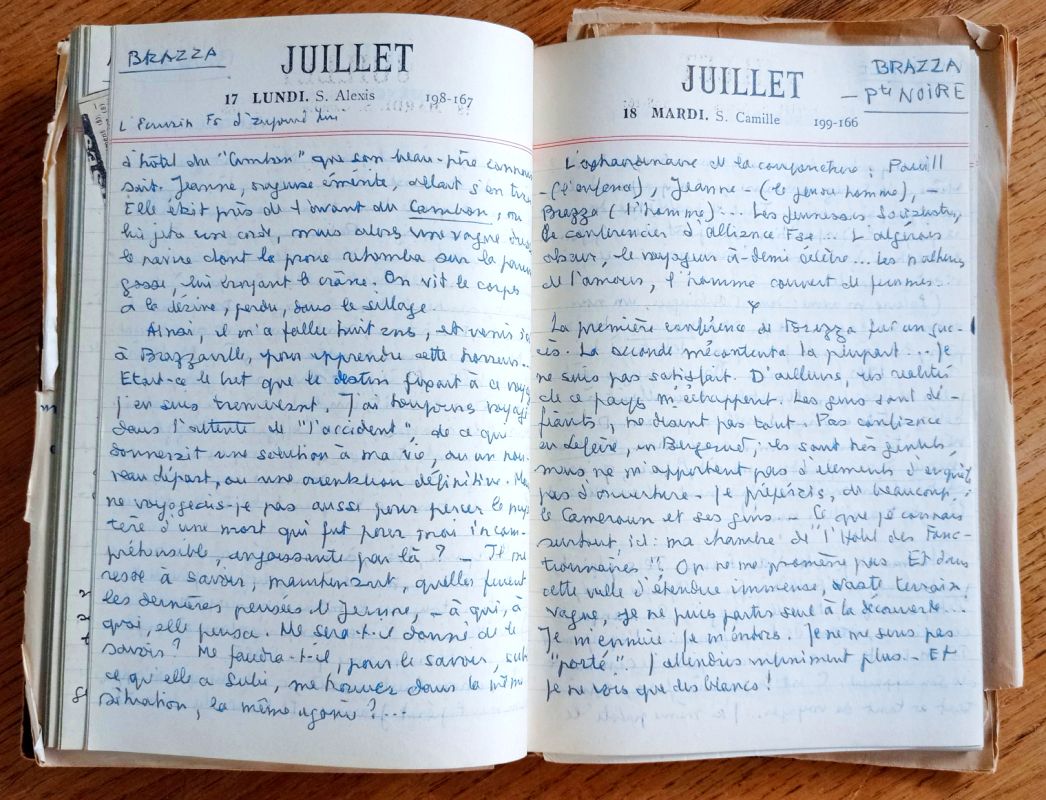 BRAZZA
JUILLET
17 LUNDI. S. Alexis 198-167
L'Ecrivain Fs d'aujourd'hui
d'hôtel du "Cambon" que son beau-père connais-
sait. Jeanne, nageuse émérite, allait s'en tirer
Elle était près de l'avant du Cambon, on
lui jeta une corde, mais alors une vague
le navire dont la proue retomba sur la pauvre
gosse, lui broyant le crâne. On vit le corps
à la dérive, perdu, dans le sillage.
Ainsi, il m'a fallu huit ans, et venir ici
à Brazzaville, pour apprendre cette horreur...
Etait-ce le but que le destin fixait à ce voyage
J'en suis tremblant. J'ai toujours voyagé
dans l'attente de "l'accident", de ce qui
donnerait une solution à ma vie, ou un nou-
veau départ, ou une orientation définitive. Mais
ne voyageais-je pas aussi pour percer le mys-
tère d'une mort qui fut pour moi incom-
préhensible, angoissante par là ? – Il me
reste à savoir, maintenant, quelles furent
les dernières pensées de Jeanne, – à qui, à
quoi, elle pensa. Me sera-t-il donné de le
savoir ? Me faudra-t-il, pour le savoir, subir
ce qu'elle a subi, me trouver dans la même
situation, la même agonie ?...
BRAZZA
– Pte NOIRE
JUILLET
18 MARDI. S. Camille 199-166
L'extraordinaire de la conjoncture :
– (l'enfance), Jeanne – (le jeune homme), –
Brazza (l'homme)... Les Jeunesses Socialistes,
le conférencier d'Alliance Fse... L'algérois
obscur, – le voyageur à-demi célèbre... Les malheurs
de l'amour, l'homme couvert de femmes...
La première conférence de Brazza fut un suc-
cès. La seconde mécontenta la plupart... Je
ne suis pas satisfait. D'ailleurs, les réalités
de ce pays m'échappent. Les gens sont dé-
fiants, ne disent pas tout. Pas confiance
en Lefèvre, en Bergeret ; ils sont très gentils,
mais ne m'apportent pas d'éléments d'enquête,
pas d'ouverture – Je préférais, de beaucoup,
le Cameroun et ses gens – Ce que je connais
surtout, ici : ma chambre de "l'Hôtel des Fonc-
tionnaires" ! On ne me promène pas. Et dans
cette ville d'étendue immense, vaste terrain
vague, je ne puis partir seul à la découverte...
Je m'ennuie. Je m'endors. Je ne me sens pas
"porté". J'attendais infiniment plus – Et
je ne vois que des blancs !